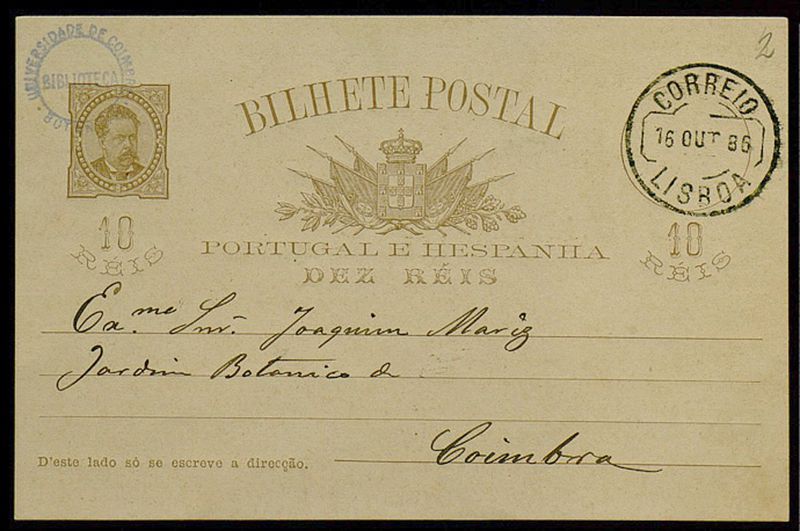 UNIVERSIDADE DE COIMBRA
BIBLIOTECA
2
BILHETE POSTAL
CORREIO
16 OUT 86
LISBOA
10
RÉIS
10
RÉIS
PORTUGAL E HESPANHA
DEZ RÉIS
Ex.mo Snr. Joaquim Mariz
Jardim Botanico de
Coimbra
D'este lado só se escreve a direcção.